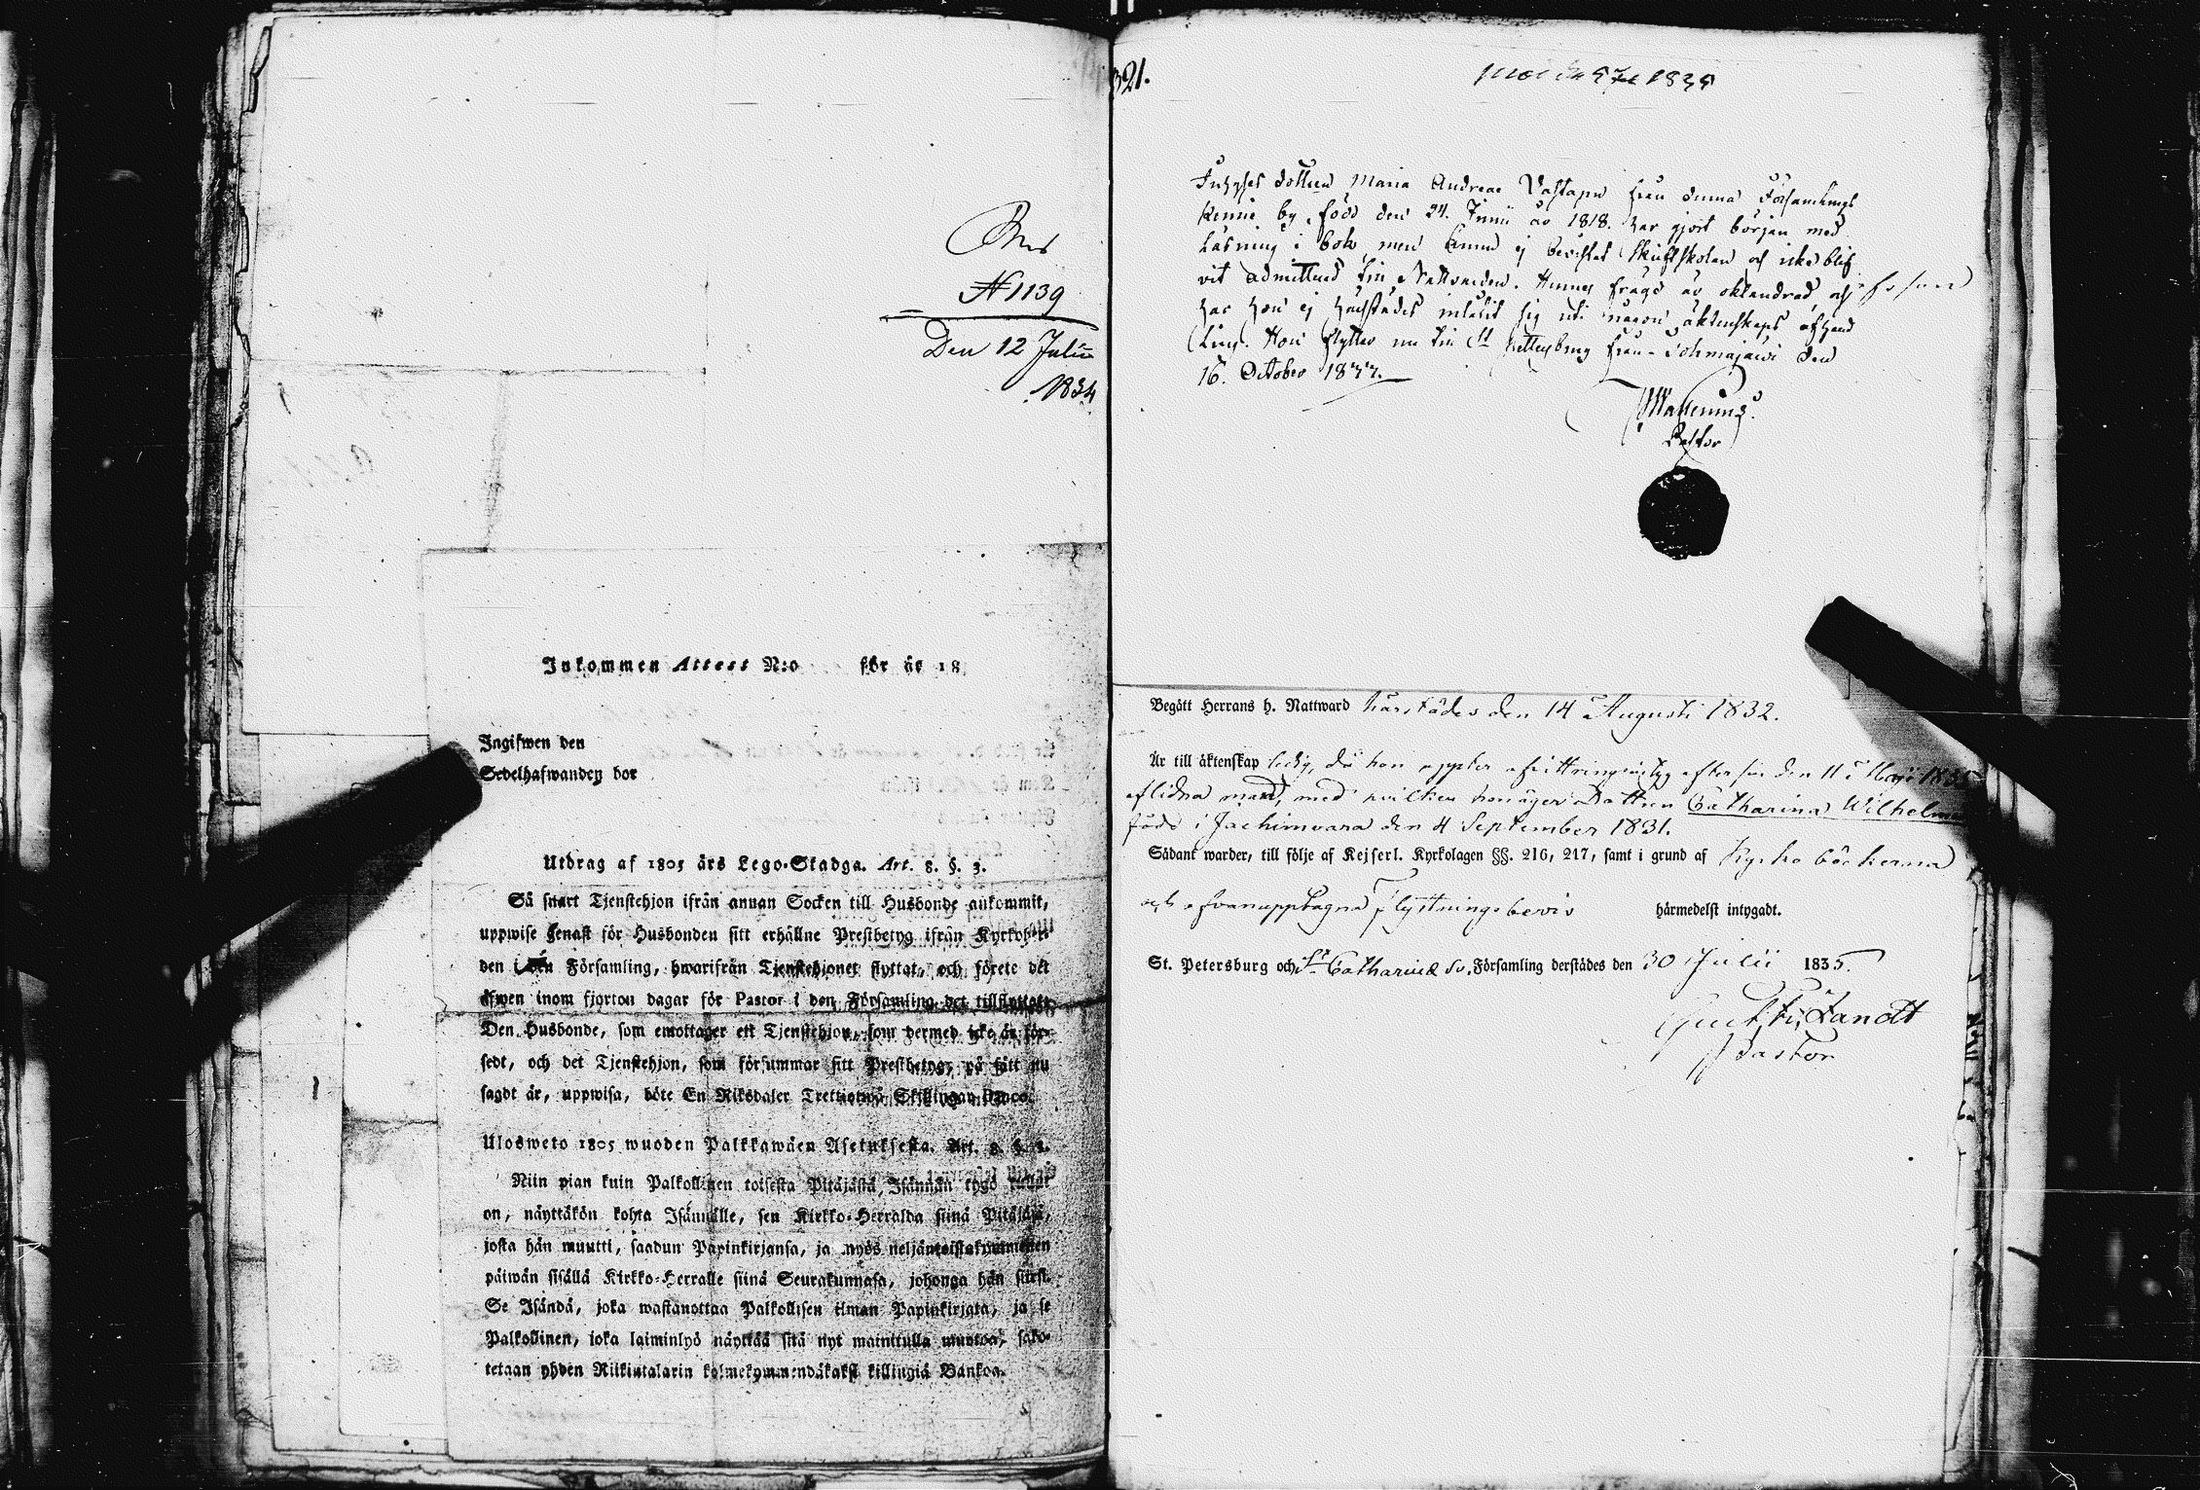 N 1139
Den 12 Julii
1834
Inkommen Attest N:o för år 18
Ingifwen den
Sedelhafwanden bor
Utdrag af 1805 års Lego-Stadga. Art. 8. §. 3.
Så snart Tjenstehjon ifrån annan Socken till Husbonde ankommit,
uppwise senast för Husbonden sitt erhållne Prestbetyg ifrån Kyrkoher-
den i den Församling, hwarifrån Tjenstehjonet flyttat, och förete det
äfwen inom fjorton dagar för Pastor i den Församling det tillflyttat.
Den Husbonde, som emottager ett Tjenstehjon, som dermed icke är för-
sedt, och det Tjenstehjon, som försummar sitt Prestbetyg, på sätt nu
sagdt är, uppwisa, böte En Riksdaler Trettiotwå Skillingar Banco.
Ulosweto 1805 wuoden Palkkawäen Asetuksesta. Art. 8. §. 3.
Niin pian kuin Palkollinen toisesta Pitäjästä, Isännän tygö tullut
on, näyttäkön kohta Isännälle, sen Kirkko-Herralda siinä Pitäjäsä,
josta hän muutti, saadun Papinkirjansa, ja myös neljäntoistakymmenen
päiwän sisällä Kirkko-Herralle siinä Seurakunnasa, johonga hän siirsi.
Se Isändä, joka wastanottaa Palkollisen ilman Papinkirjata, ja se
Palkollinen, joka laiminlyö näyttää sitä nyt mainitulla muotoa, sako-
tetaan yhden Riikintalarin kolmekymmendäkaksi killingiä Bankoa.
321.
1835
dottren Maria Andreae från denna Församlings
by, född den 24. Junii år 1818. har gjort början med
Läsning i bok men ej bevistat Skriftskolan och icke blif
vit admitterad till Nattvarden. Hennes frägd är oklandrad, och
har hon ej härstädes inlåtit sig uti någon äktenskaps afhand
ling. Hon flyttar nu till St Pettersburg från Tohmajärvi den
16. October 1833.
Pastor
Begått Herrans h. Nattward härstädes den 14 Augusti 1832.
Är till äktenskap ledig, då hon efter sin den 11 Maji 1835
aflidna man, med hvilken hon äger Dottren Catharina Wilhelmina
född i Jachimvara den 4 September 1831.
Sådant warder, till följe af Kejserl. Kyrkolagen §§. 216, 217, samt i grund af Kyrko böckerna
och ofvanupptagna flyttningsbevis härmedelst intygadt.
St. Petersburg och St Catharinæ Sv. Församling derstädes den 30 Julii 1835.
Pastor